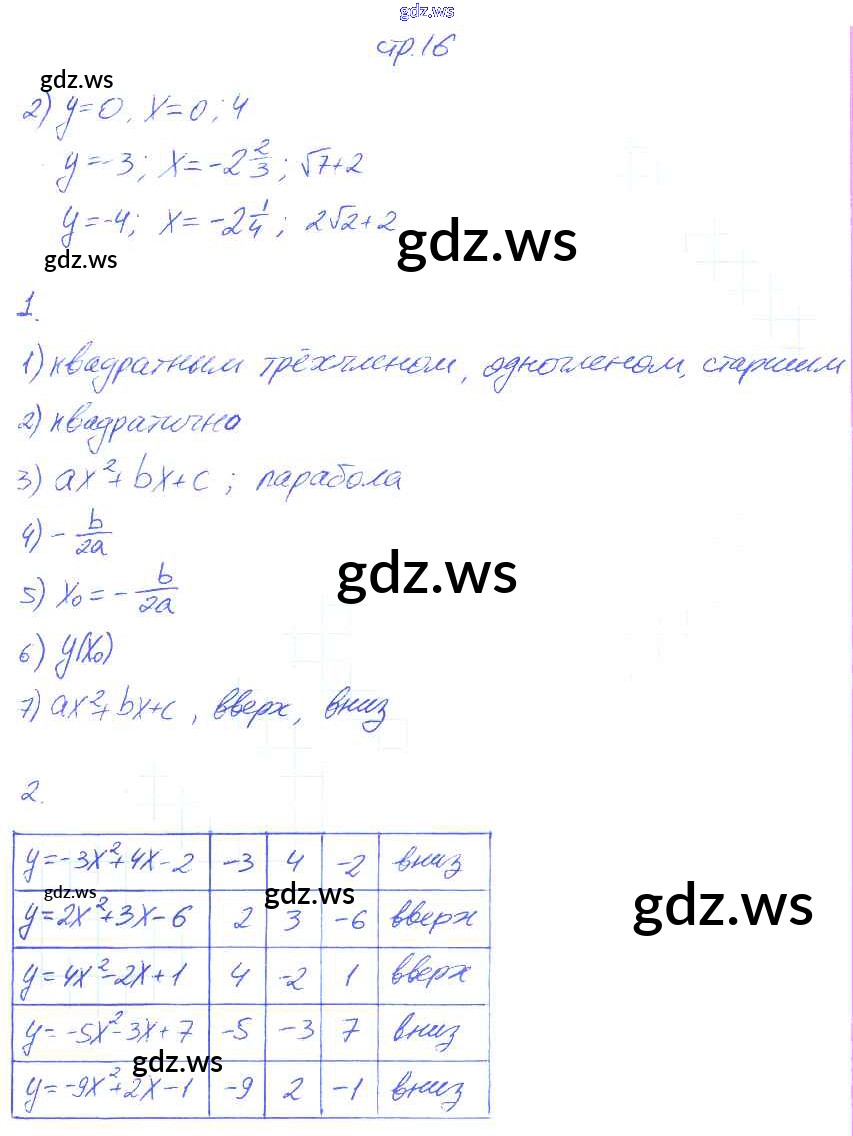 gdz.ws
стр.16
gdz.ws
2) y=0, x=0; 4
y=-3; x=-2 2/3; √7+2
y=-4; x=-2 1/4; 2√2+2
gdz.ws
gdz.ws
1.
1) квадратным трёхчленом, одночленом, старшим
2) квадратично
3) ax²+bx+c; парабола
4) -b/2a
gdz.ws
5) x₀=-b/2a
6) y(x₀)
7) ax²+bx+c, вверх, вниз
2.
y=-3x²+4x-2 -3 4 -2 вниз
gdz.ws gdz.ws gdz.ws
y=2x²+3x-6 2 3 -6 вверх
y=4x²-2x+1 4 -2 1 вверх
y=-5x²-3x+7 -5 -3 7 вниз
gdz.ws
y=-9x²+2x-1 -9 2 -1 вниз